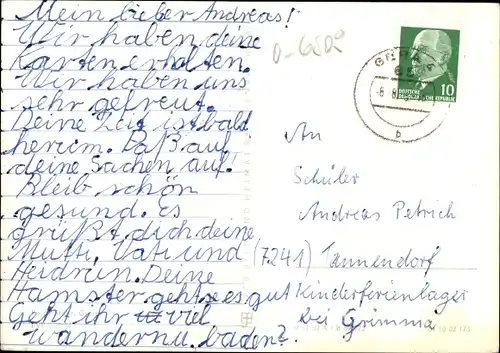 Mein lieber Andreas!
Wir haben deine
Karten erhalten.
Wir haben uns
sehr gefreut.
Deine Zeit ist bald
herum. Paß auf
deine Sachen auf!
Bleib schön
gesund. Es
grüßt dich deine
Mutti, Vati und
Heidrun. Deine
Hamster geht es gut
Geht ihr viel
wandern u. baden?
D-6502
GERA
DEUTSCHE
DEMOKRATISCHE REPUBLIK
10
b
An
Schüler
Andreas Petrich
(7241) Tannendorf
Kinderferienlager
bei Grimma